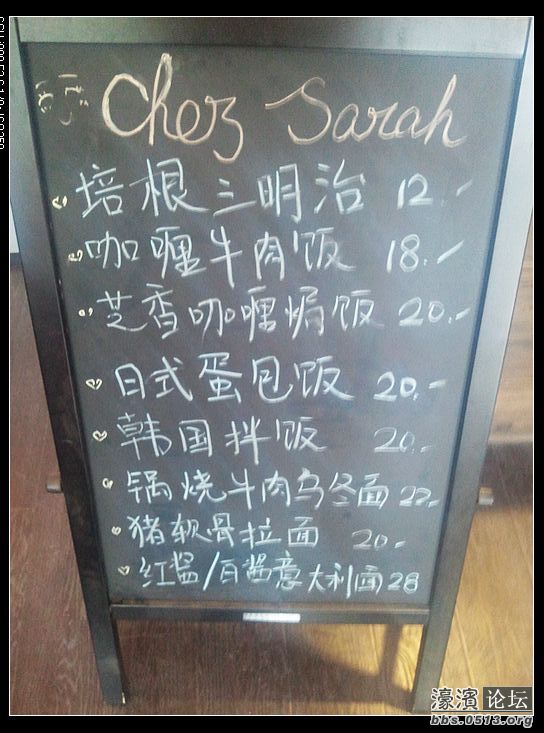 Chez Sarah
培根三明治 12.-
咖喱牛肉饭 18.-
芝香咖喱焗饭 20.-
日式蛋包饭 20.-
韩国拌饭 20.-
锅烧牛肉乌冬面 22.-
猪软骨拉面 20.-
红酱/白酱意大利面 28
濠濱论坛
bbs.0513.org